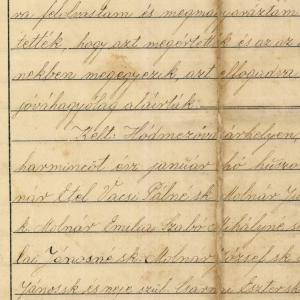 va felolvastam és megmagyaráztam
tették, hogy azt megértették és az az
nekben megegyezik, azt elfogadta
jóváhagyólag aláírták.
Kelt: Hódmezővásárhelyen,
harmincöt évi január hó husza
nár Etel Vacsi Pálné sk. Molnár
k. Molnár Emilia Szabó Mihályné s
laj Jánosné sk. Molnár József sk
Jánossk és neje szül. Csarnai Eszter sk